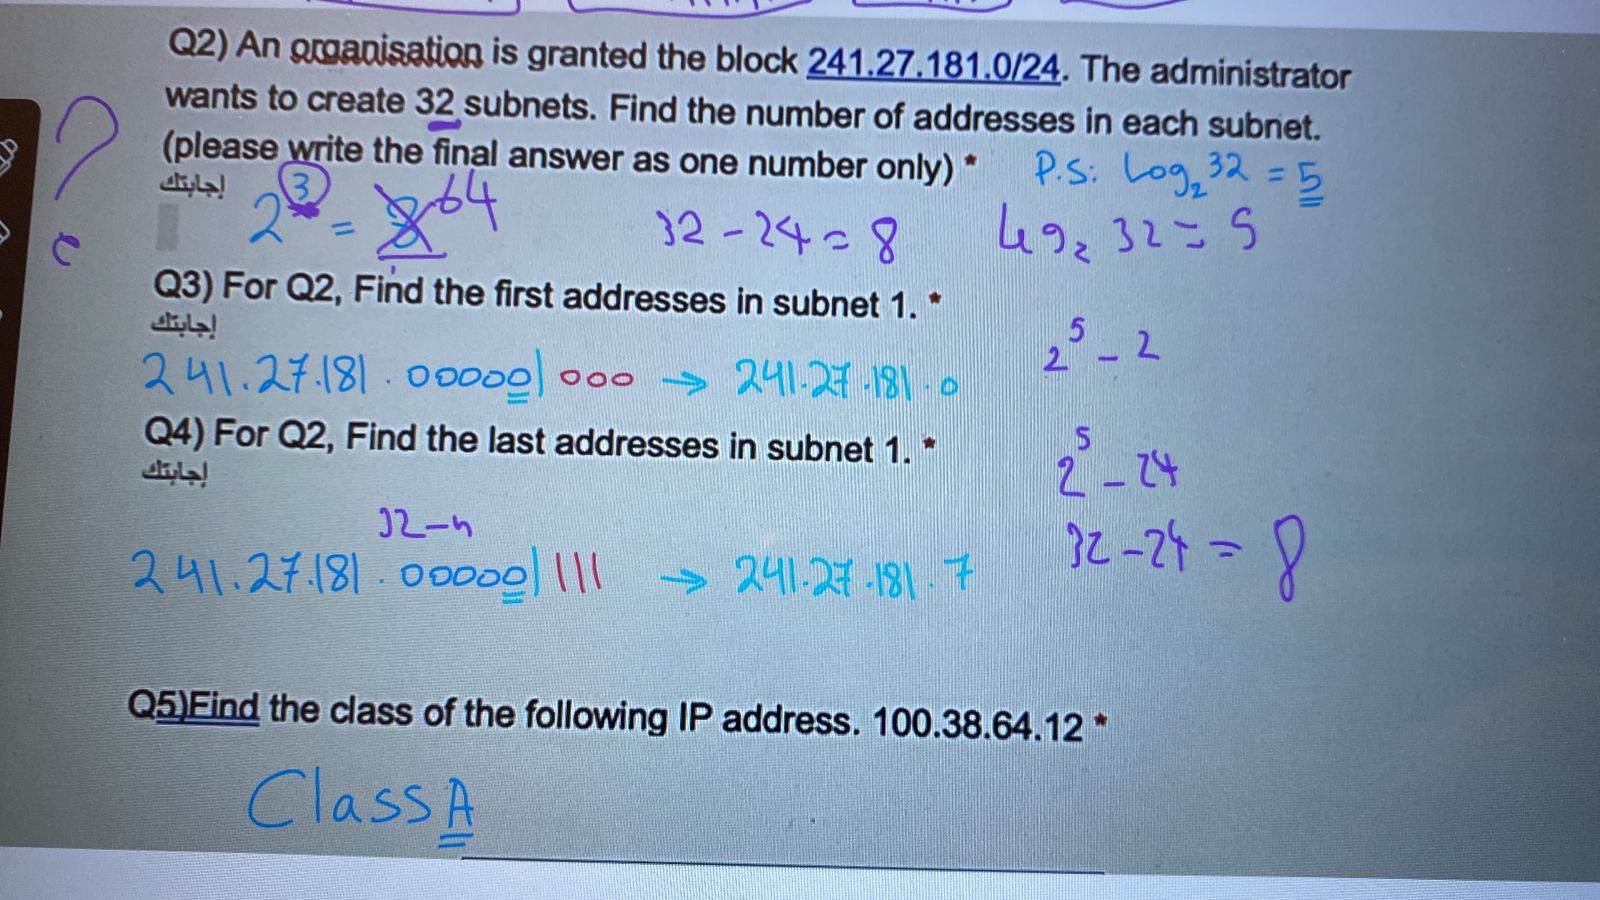 Q2) An organisation is granted the block 241.27.181.0/24. The administrator
wants to create 32 subnets. Find the number of addresses in each subnet.
(please write the final answer as one number only) *
P.S: Log₂32 = 5
إجابتك
2³ = 8 64
32 - 24 = 8
log₂ 32 = 5
?
Q3) For Q2, Find the first addresses in subnet 1. *
إجابتك
2⁵ - 2
241.27.181.00000|000 → 241.27.181.0
Q4) For Q2, Find the last addresses in subnet 1. *
إجابتك
2⁵ - 24
32-n
32-24 = 8
241.27.181.00000|111 → 241.27.181.7
Q5)Find the class of the following IP address. 100.38.64.12 *
Class A